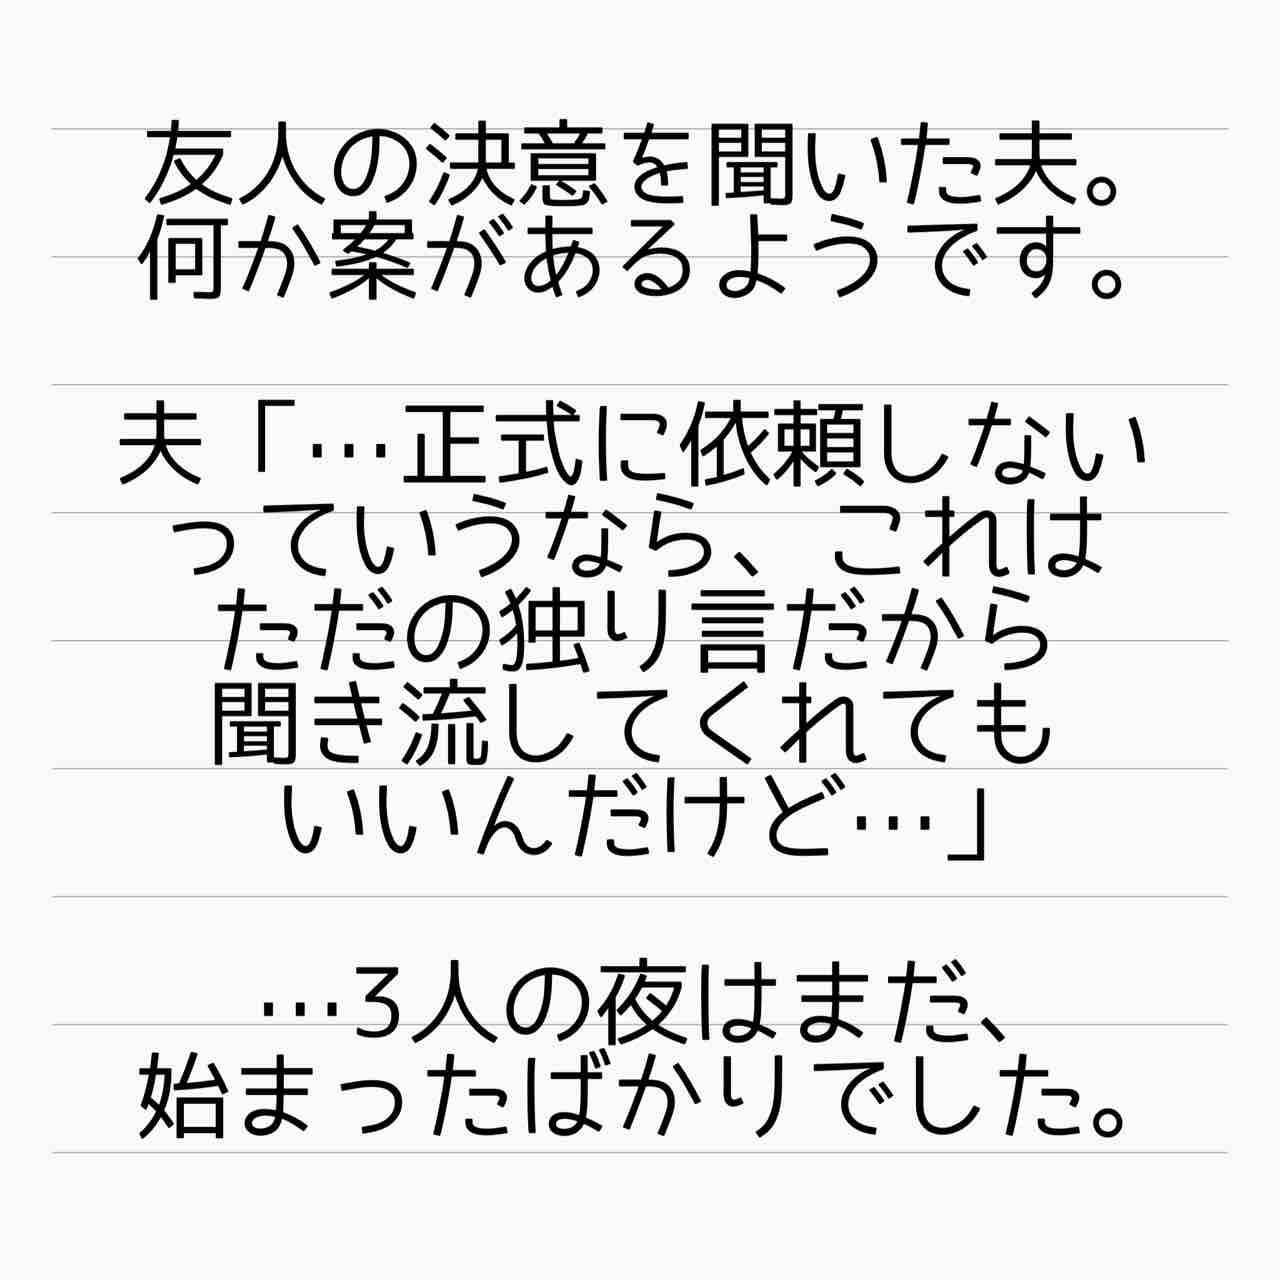 友人の決意を聞いた夫。
何か案があるようです。
夫「…正式に依頼しない
っていうなら、これは
ただの独り言だから
聞き流してくれても
いいんだけど…」
…3人の夜はまだ、
始まったばかりでした。